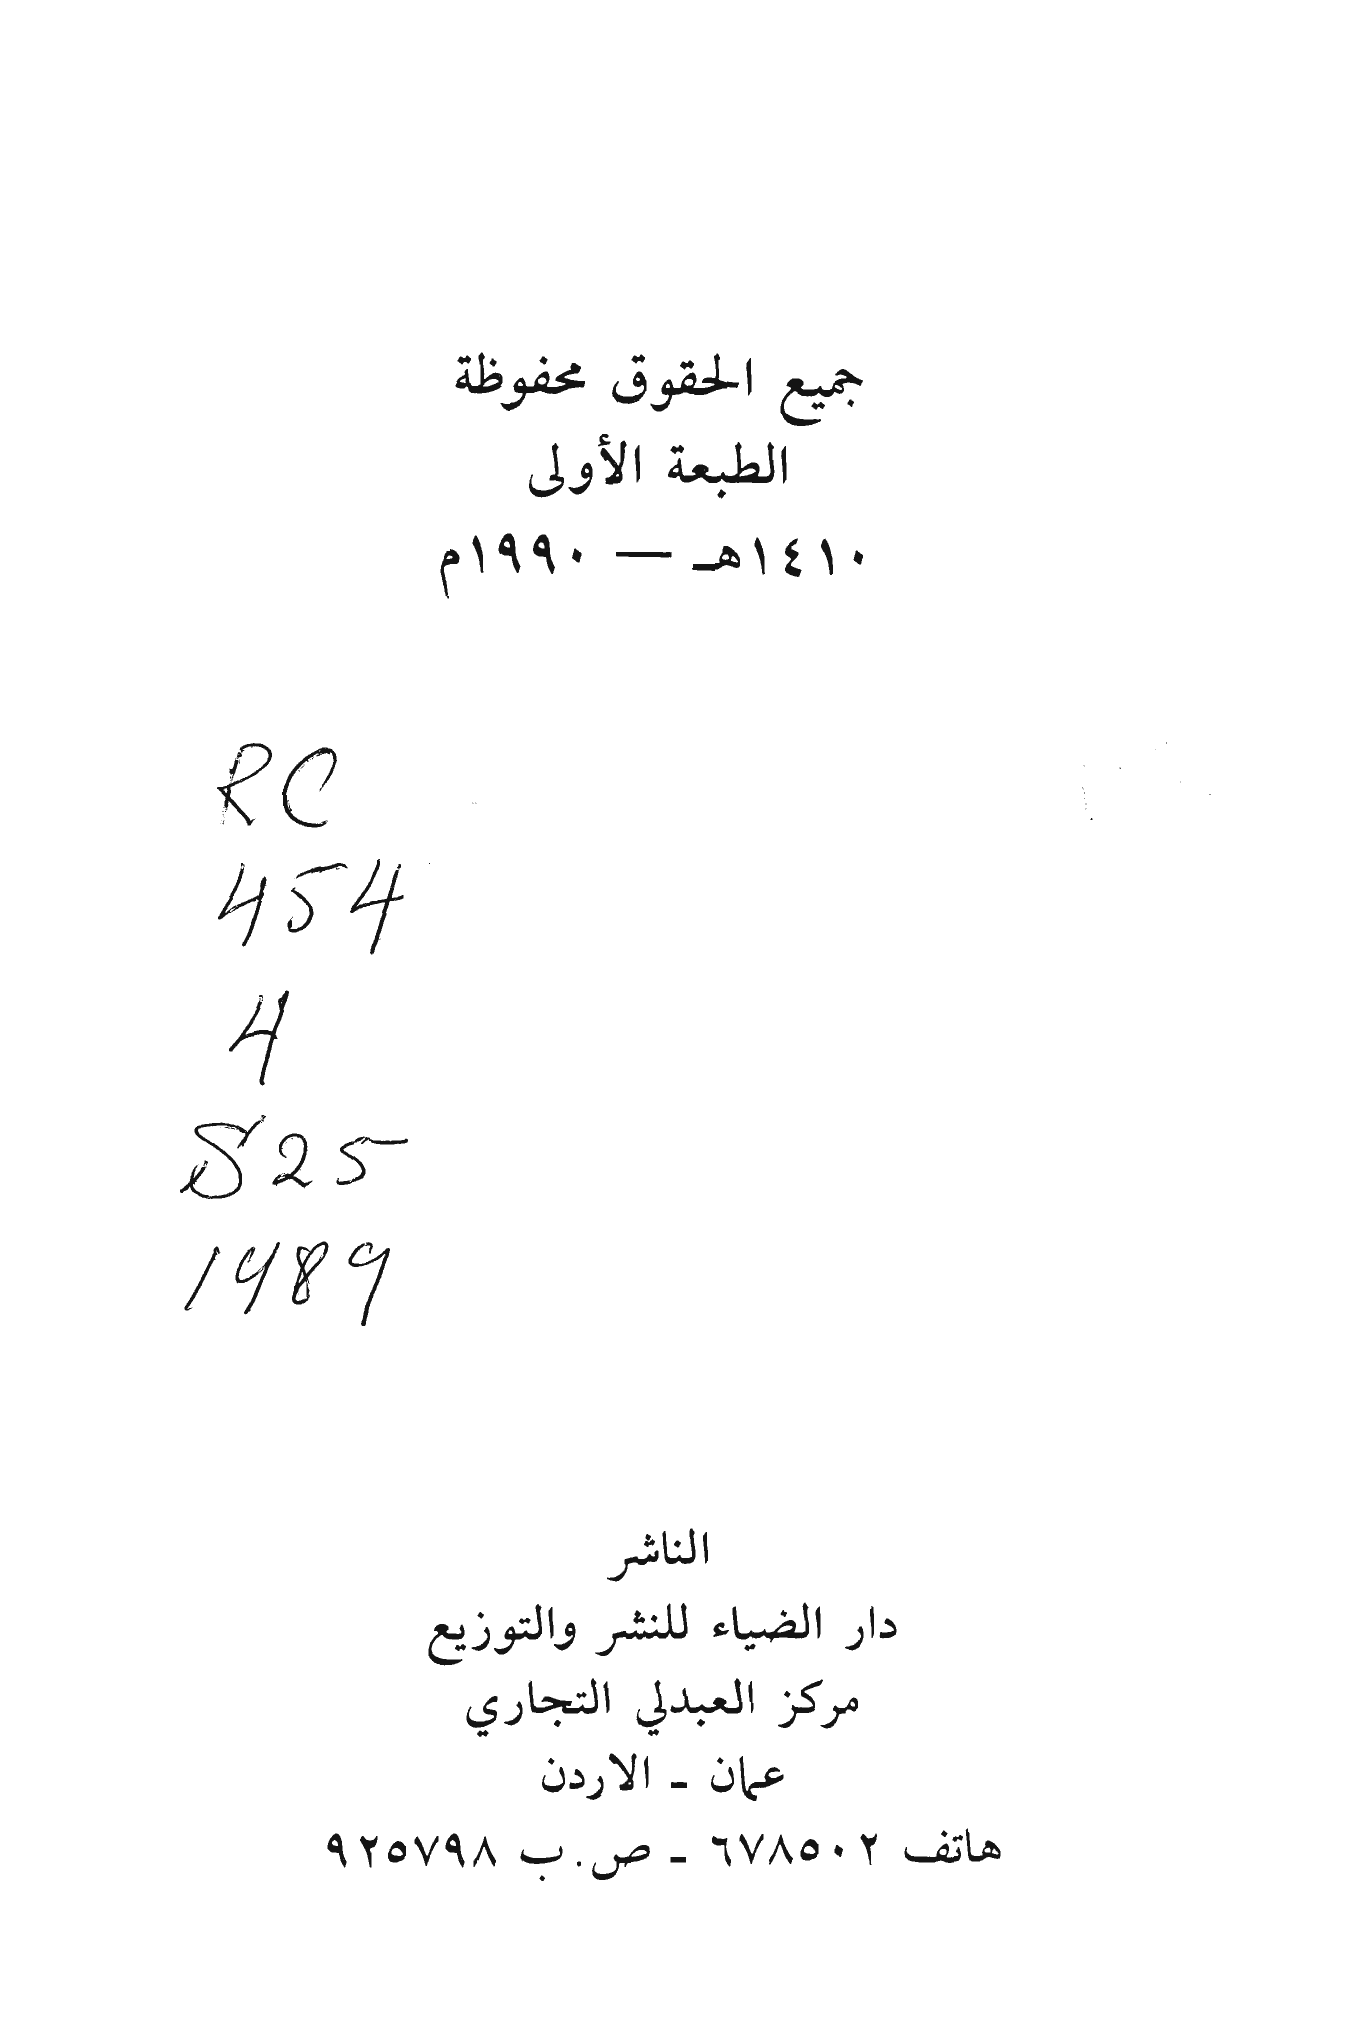 جميع الحقوق محفوظة
الطبعة الأولى
١٤١٠هـ — ١٩٩٠م
RC
454
4
S25
1989
الناشر
دار الضياء للنشر والتوزيع
مركز العبدلي التجاري
عمان ـ الاردن
هاتف ٦٧٨٥٠٢ ـ ص.ب ٩٢٥٧٩٨